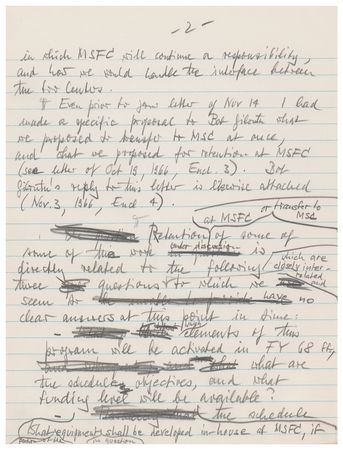 -2-
in which MSFC will continue a responsibility,
and how we would handle the interface between
the two Centers.
Even prior to your letter of Nov 14 I had
made a specific proposal to Bob Gilruth what
we proposed to transfer to MSC at once,
and what we proposed for retention at MSFC
(see letter of Oct 19, 1966, Encl. 3). Bob
Gilruth's reply to this letter is likewise attached
(Nov. 3, 1966, Encl 4).
at MSFC or transfer to
MSC
Retention of some of
some of the work under discussion is
directly related to the following which are
closely inter-
related and
three questions to which we
seem to have no
clear answers at this point in time:
- elements of this
program will be activated in FY 68 ,
what are
the schedule objectives, and what
funding level will be available?
- the schedule
What equipment shall be developed in-house at MSFC, if
in question